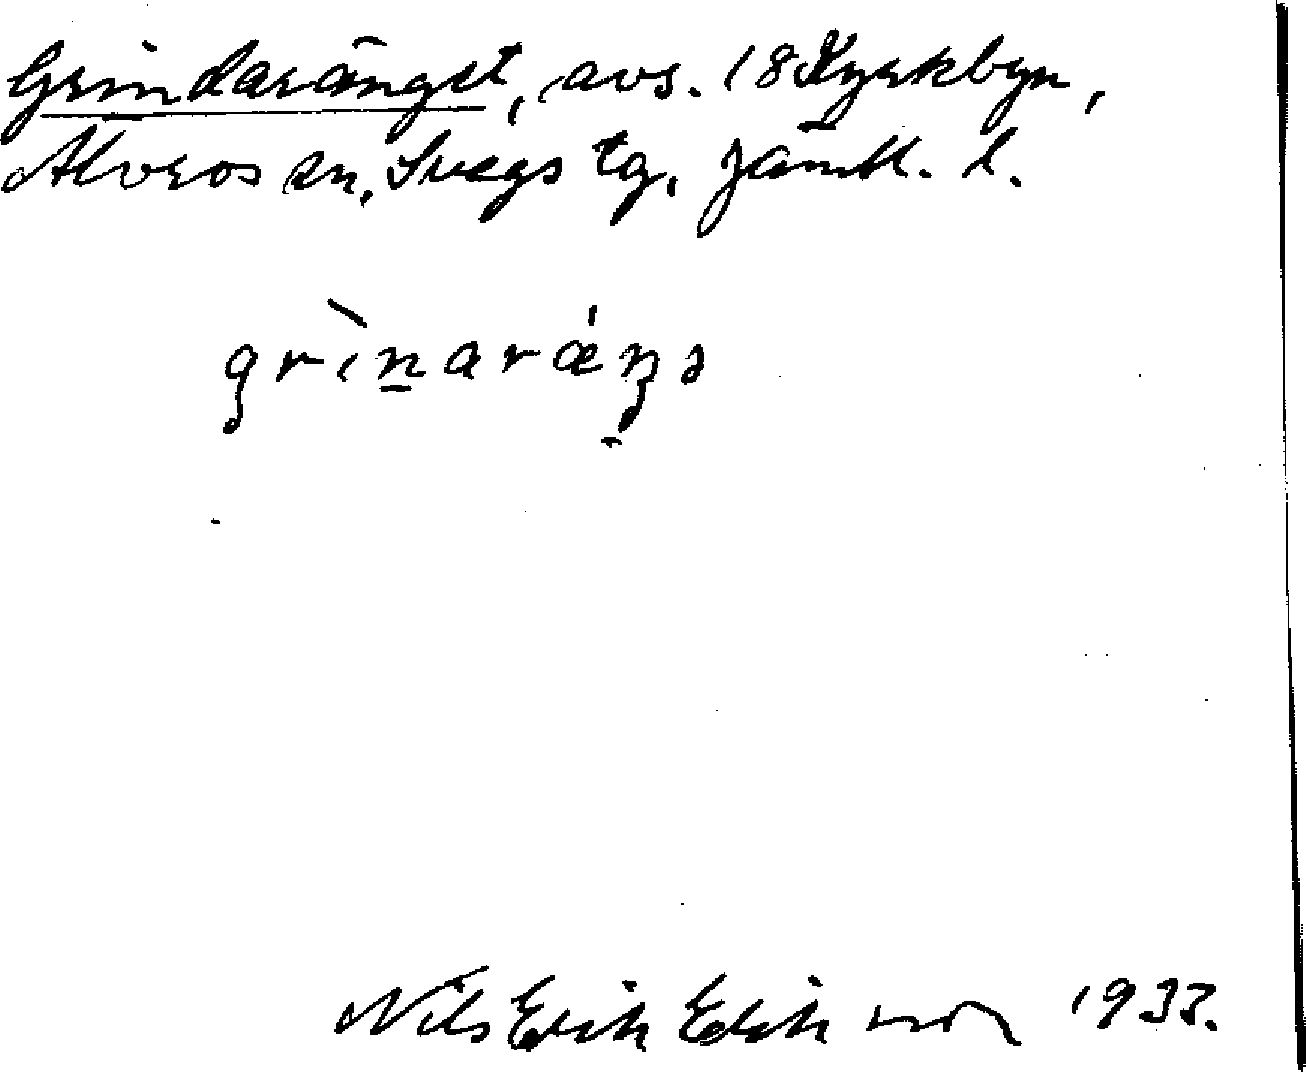 Grindaränget, avs. 18 Kyrkbyn,
Älvros sn, Svegs tg, Jämtl. l.
grìnaráŋə
Nils Erik Eriksson 1933.